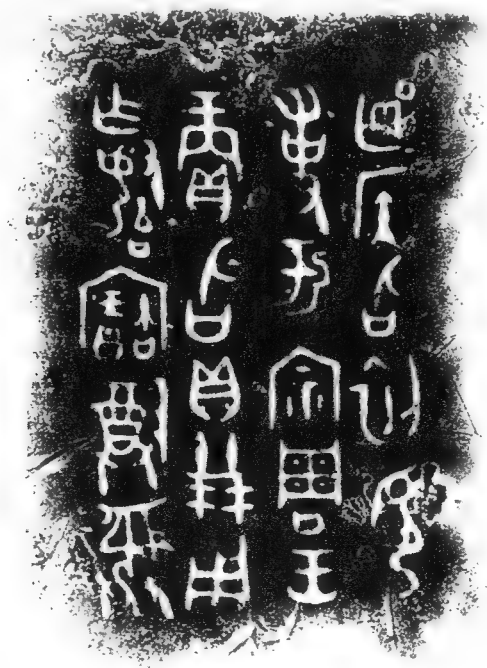 匽侯旨初見
事于宗周王
賞旨貝廿朋用
乍有始寶尊彝